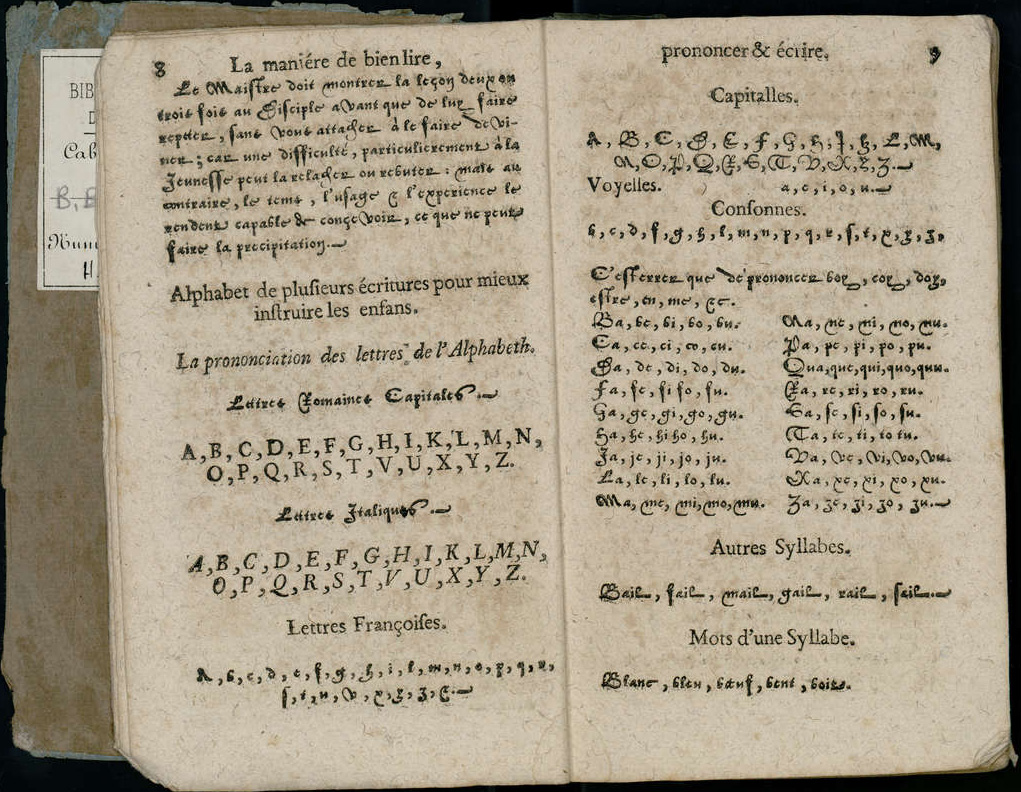 BIB
D
Cab
B.
Num
H.
8
La maniére de bien lire,
Le Maistre doit montrer la leçon deux ou
trois fois au Disciple avant que de luy faire
repeter, sans vous attacher à le faire devi-
ner ; car une difficulté, particulierement à la
Jeunesse peut la relacher ou rebuter : mais au
contraire, le tems, l'usage & l'experience le
rendent capable de concevoir, ce que ne peut
faire la precipitation.
Alphabet de plusieurs écritures pour mieux
instruire les enfans.
La prononciation des lettres de l'Alphabeth.
Lettres Romaines Capitales.
A, B, C, D, E, F, G, H, I, K, L, M, N,
O, P, Q, R, S, T, V, U, X, Y, Z.
Lettres Italiques.
A, B, C, D, E, F, G, H, I, K, L, M, N,
O, P, Q, R, S, T, V, U, X, Y, Z.
Lettres Françoises.
A, b, c, d, e, f, g, h, i, l, m, n, o, p, q, r,
s, t, u, v, x, y, z, &.
prononcer & écrire.
9
Capitalles.
A, B, C, D, E, F, G, H, I, K, L, M,
N, O, P, Q, R, S, T, V, X, Y, Z.
Voyelles. a, e, i, o, u.
Consonnes.
b, c, d, f, g, h, l, m, n, p, q, r, s, t, x, y, z,
C'est errer que de prononcer boy, coy, doy,
estre, en, me, &c.
Ba, be, bi, bo, bu.
Ca, ce, ci, co, cu.
Da, de, di, do, du.
Fa, fe, fi fo, fu.
Ga, ge, gi, go, gu.
Ha, he, hi ho, hu.
Ja, je, ji, jo, ju.
La, le, li, lo, lu.
Ma, me, mi, mo, mu.
Na, ne, ni, no, nu.
Pa, pe, pi, po, pu.
Qua, que, qui, quo, quu.
Ra, re, ri, ro, ru.
Sa, se, si, so, su.
Ta, te, ti, to tu.
Va, ve, vi, vo, vu.
Xa, xe, xi, xo, xu.
Za, ze, zi, zo, zu.
Autres Syllabes.
Bail, fail, mail, gail, rail, sail.
Mots d'une Syllabe.
Blanc, bleu, bœuf, bent, bois.